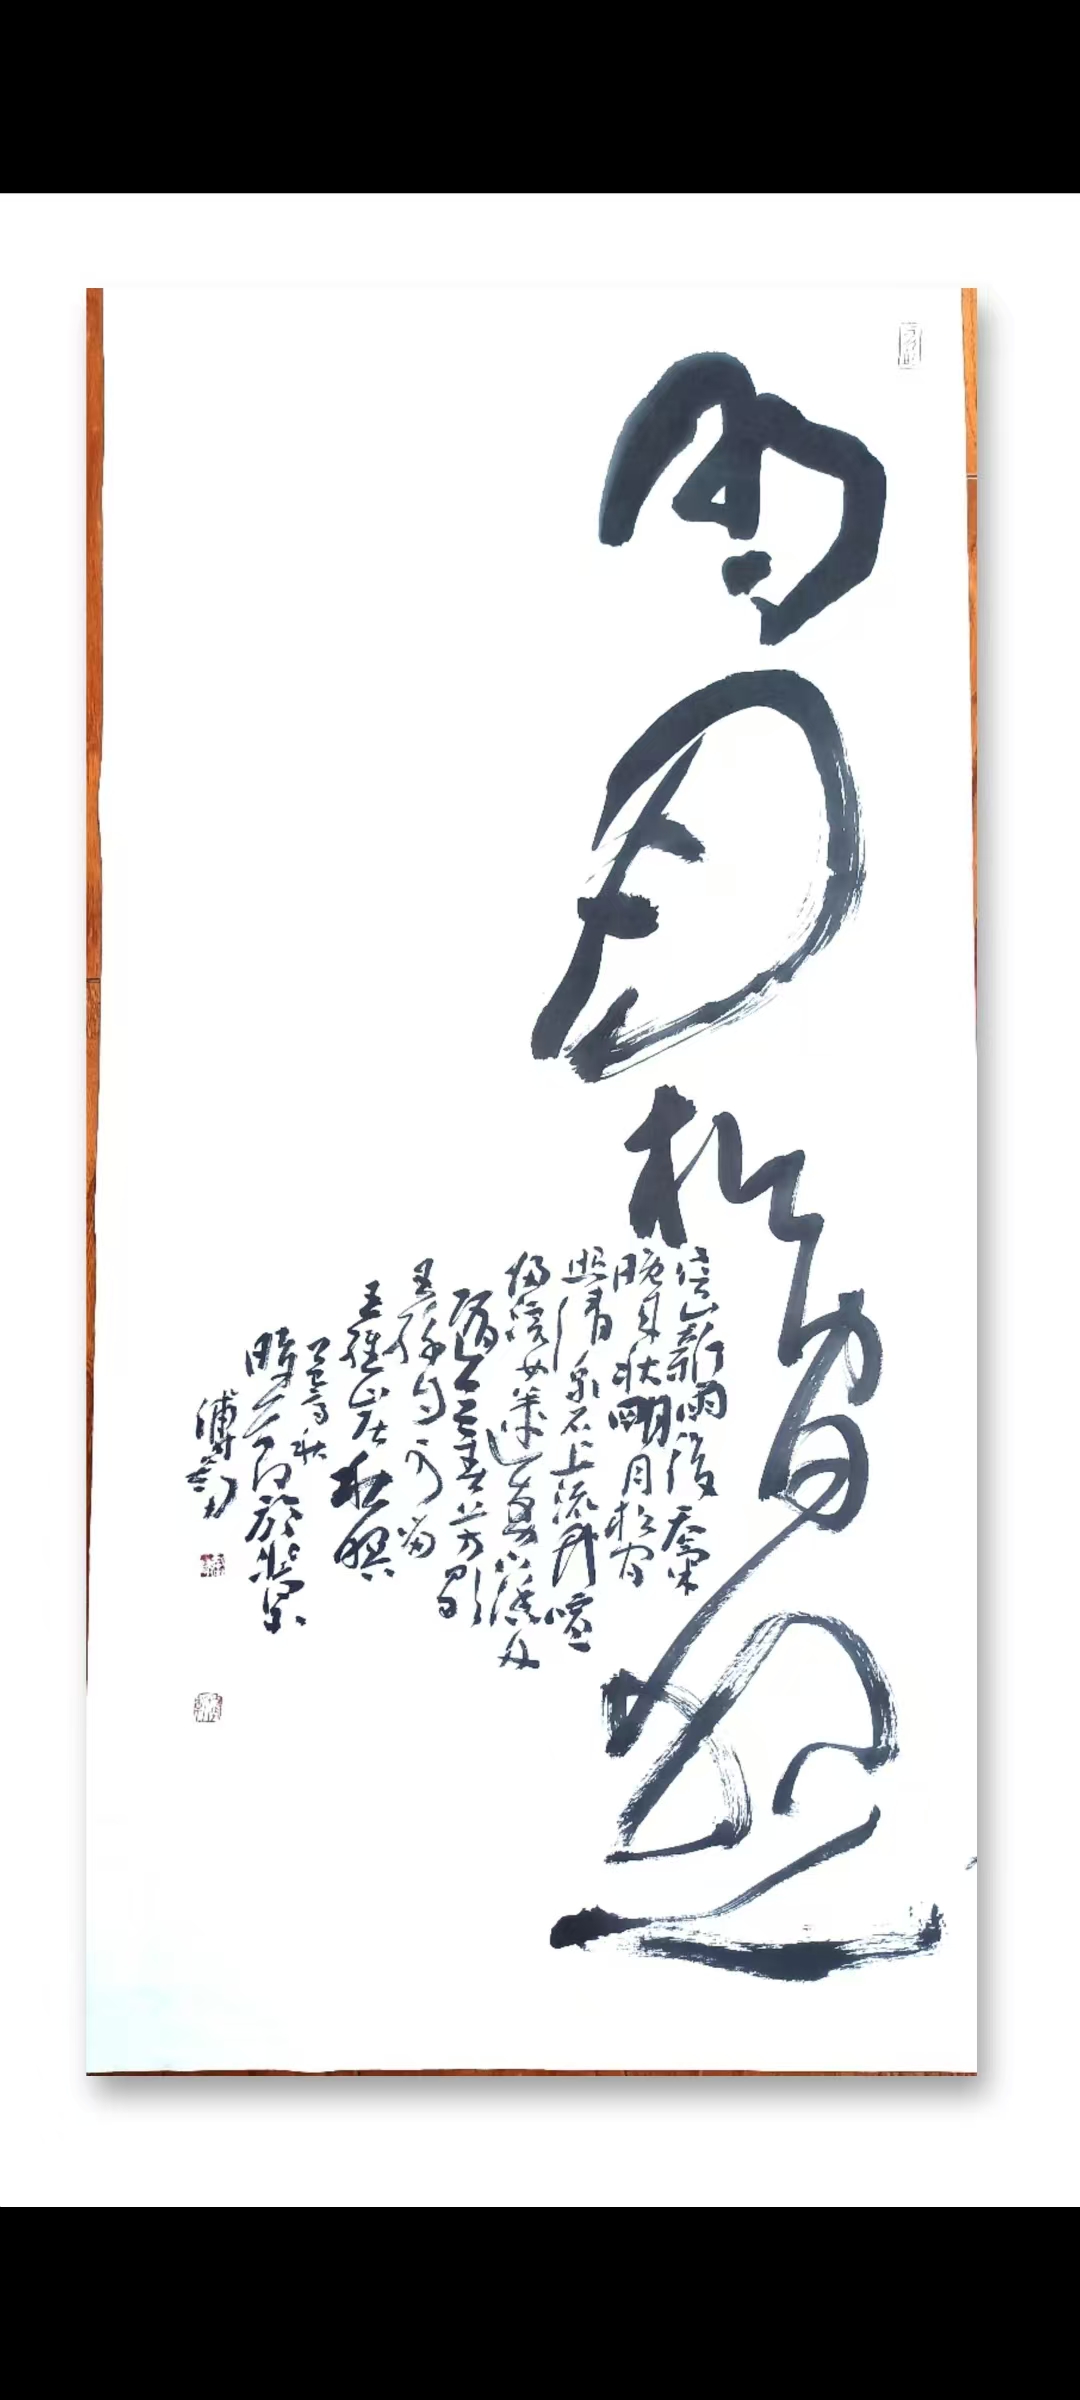 明月松間照
空山新雨後天氣
晚來秋明月松間
照清泉石上流竹喧
歸浣女蓮動下漁舟
隨意春芳歇
王孫自可留
王維山居秋暝
乙巳秋
時　於